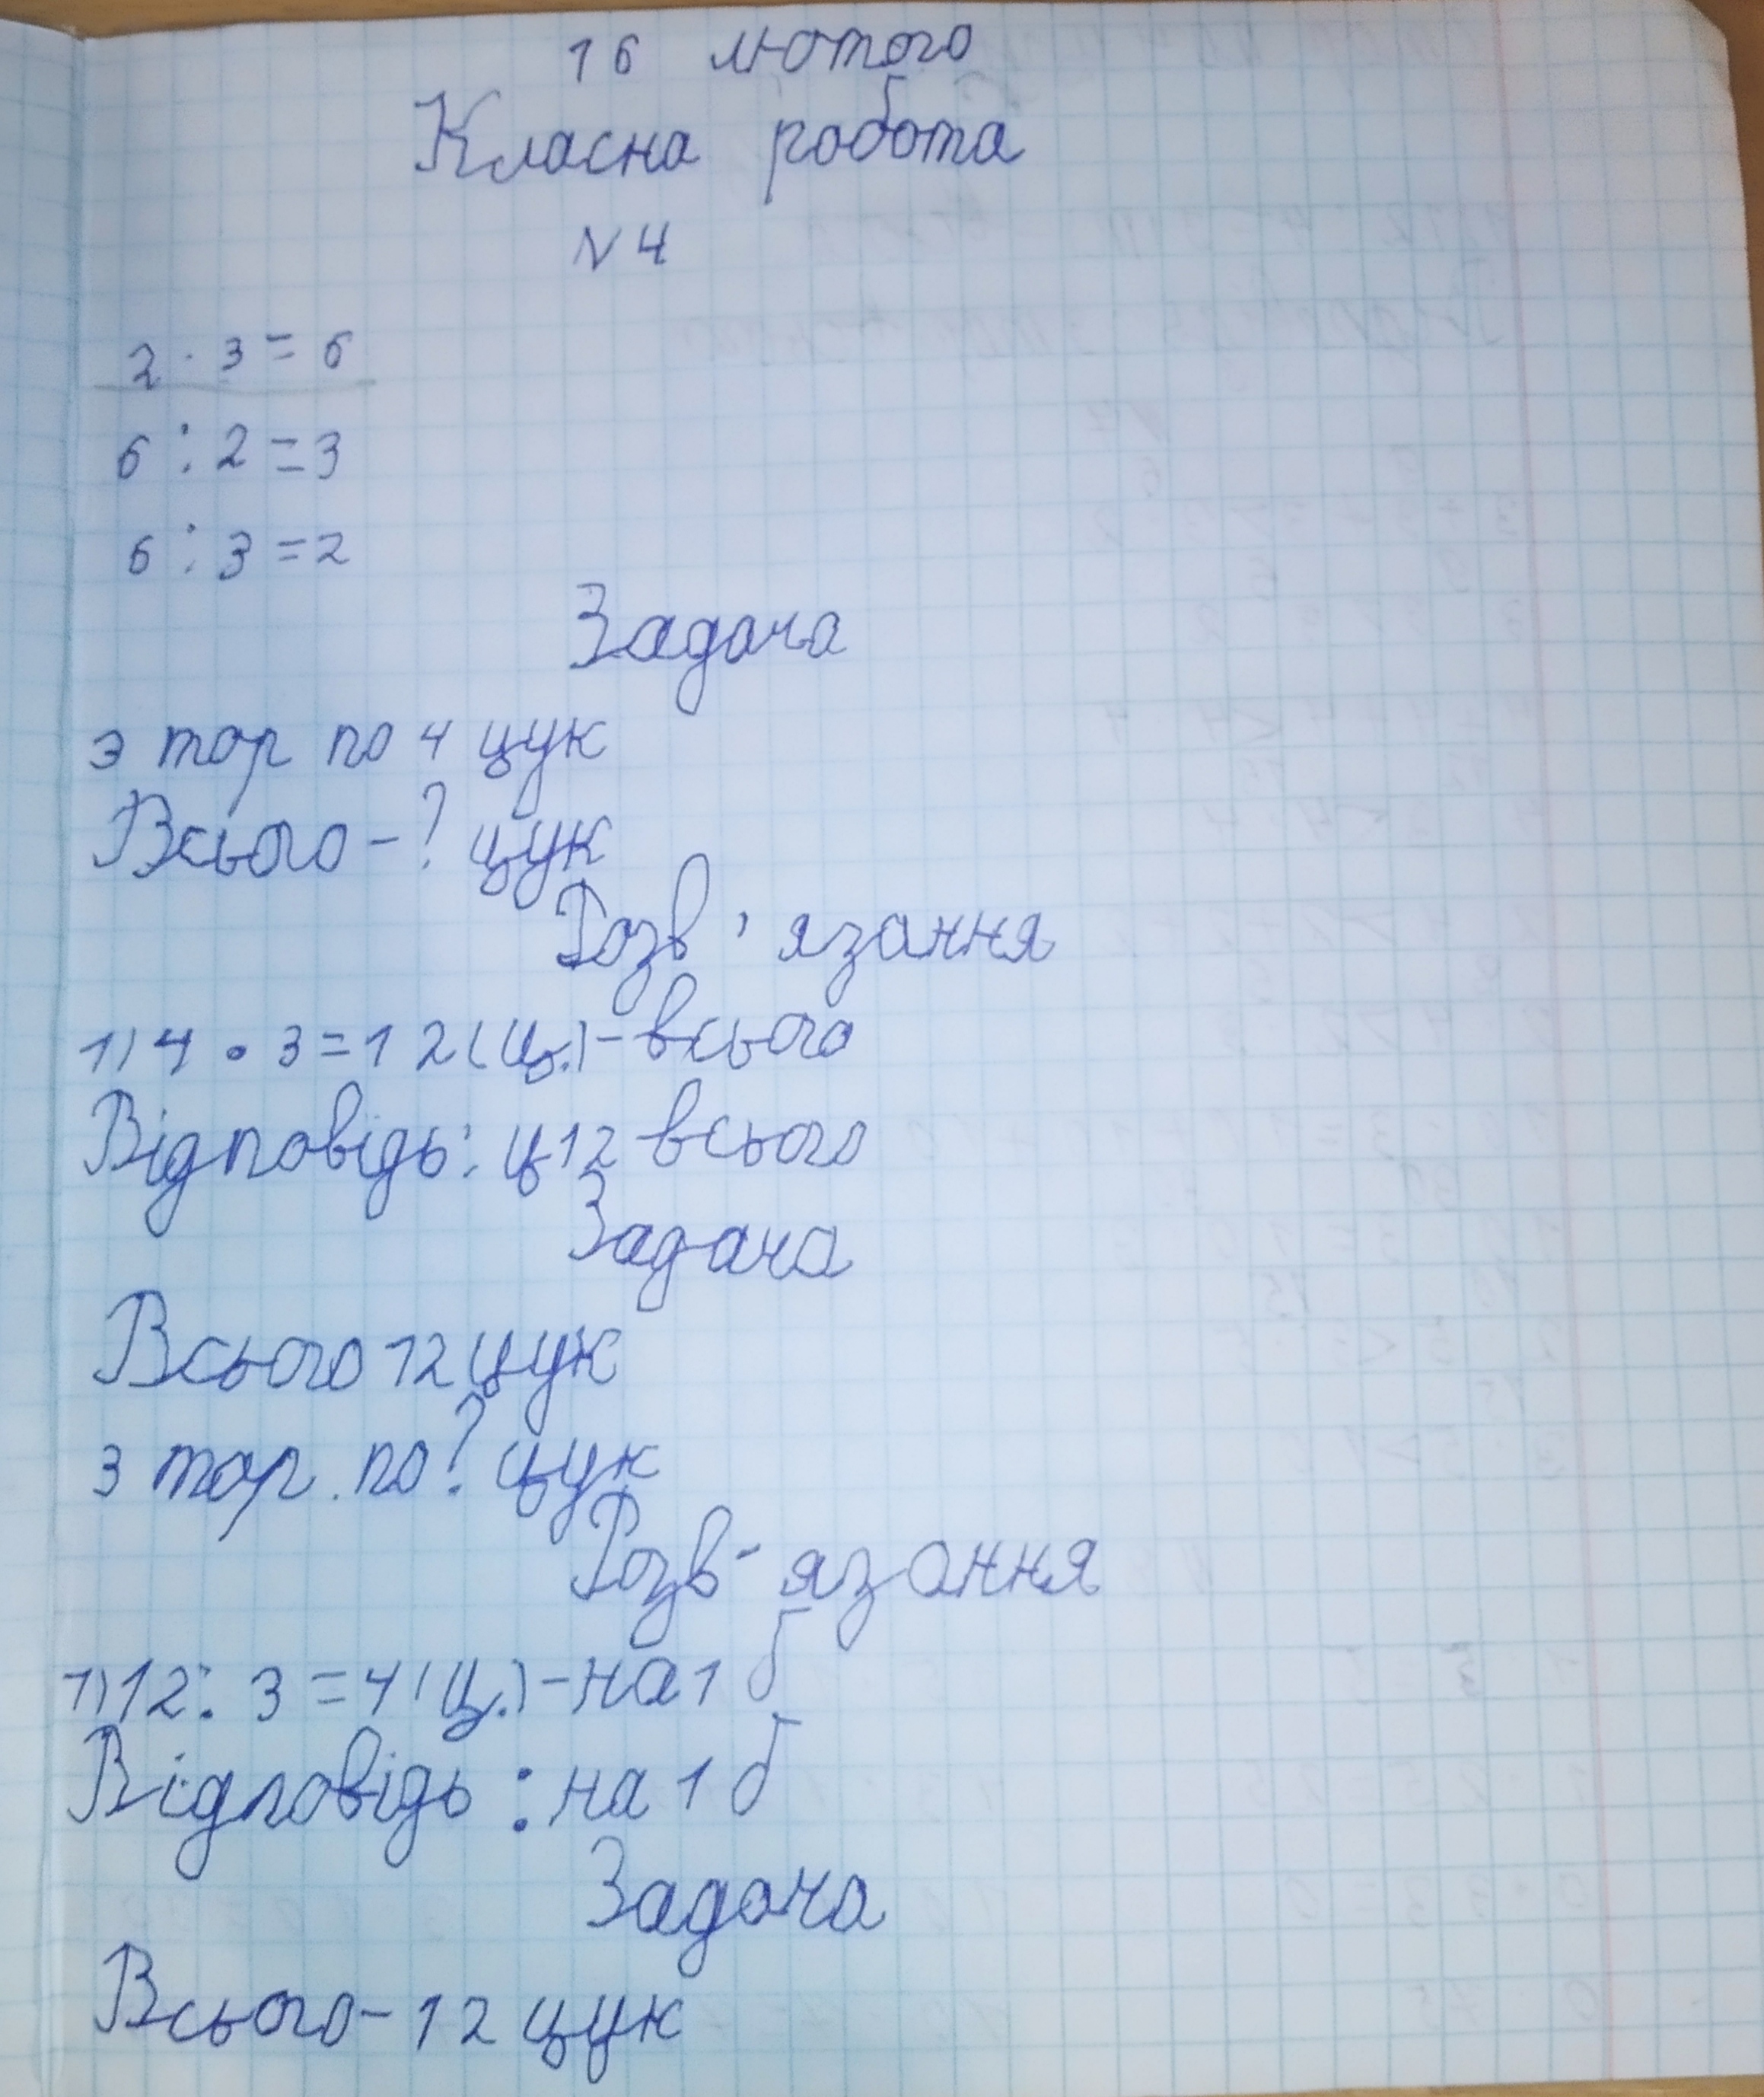 16 лютого
Класна робота
N 4
2 · 3 = 6
6 : 2 = 3
6 : 3 = 2
Задача
3 тар по 4 цук
Всього - ? цук
Розв'язання
1) 4 · 3 = 12 (ц.) - всього
Відповідь: ц 12 всього
Задача
Всього 12 цук
3 тар. по ? цук
Розв-язання
1) 12 : 3 = 4 (ц.) - на 1 б
Відповідь : на 1 б
Задача
Всього - 12 цук